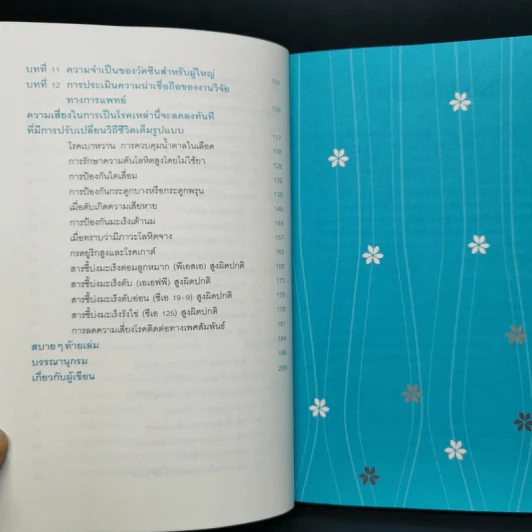 บทที่ 11 ความจำเป็นของวัคซีนสำหรับผู้ใหญ่
บทที่ 12 การประเมินความน่าเชื่อถือของงานวิจัย
ทางการแพทย์
ความเสี่ยงในการเป็นโรคเหล่านี้จะลดลงทันที
ที่มีการปรับเปลี่ยนวิถีชีวิตเต็มรูปแบบ
โรคเบาหวาน การควบคุมน้ำตาลในเลือด
การรักษาความดันโลหิตสูงโดยไม่ใช้ยา
การป้องกันไตเสื่อม
การป้องกันกระดูกบางหรือกระดูกพรุน
เมื่อตับเกิดความเสียหาย
การป้องกันมะเร็งเต้านม
เมื่อทราบว่ามีภาวะโลหิตจาง 157
กรดยูริกสูงและโรคเกาต์ 163
สารชี้บ่งมะเร็งต่อมลูกหมาก (พีเอสเอ) สูงผิดปกติ
สารชี้บ่งมะเร็งตับ (เอเอฟพี) สูงผิดปกติ
สารชี้บ่งมะเร็งตับอ่อน (ซีเอ 19-9) สูงผิดปกติ
สารชี้บ่งมะเร็งรังไข่ (ซีเอ 125) สูงผิดปกติ
การลดความเสี่ยงโรคติดต่อทางเพศสัมพันธ์
สบาย ๆ ท้ายเล่ม
บรรณานุกรม
เกี่ยวกับผู้เขียน